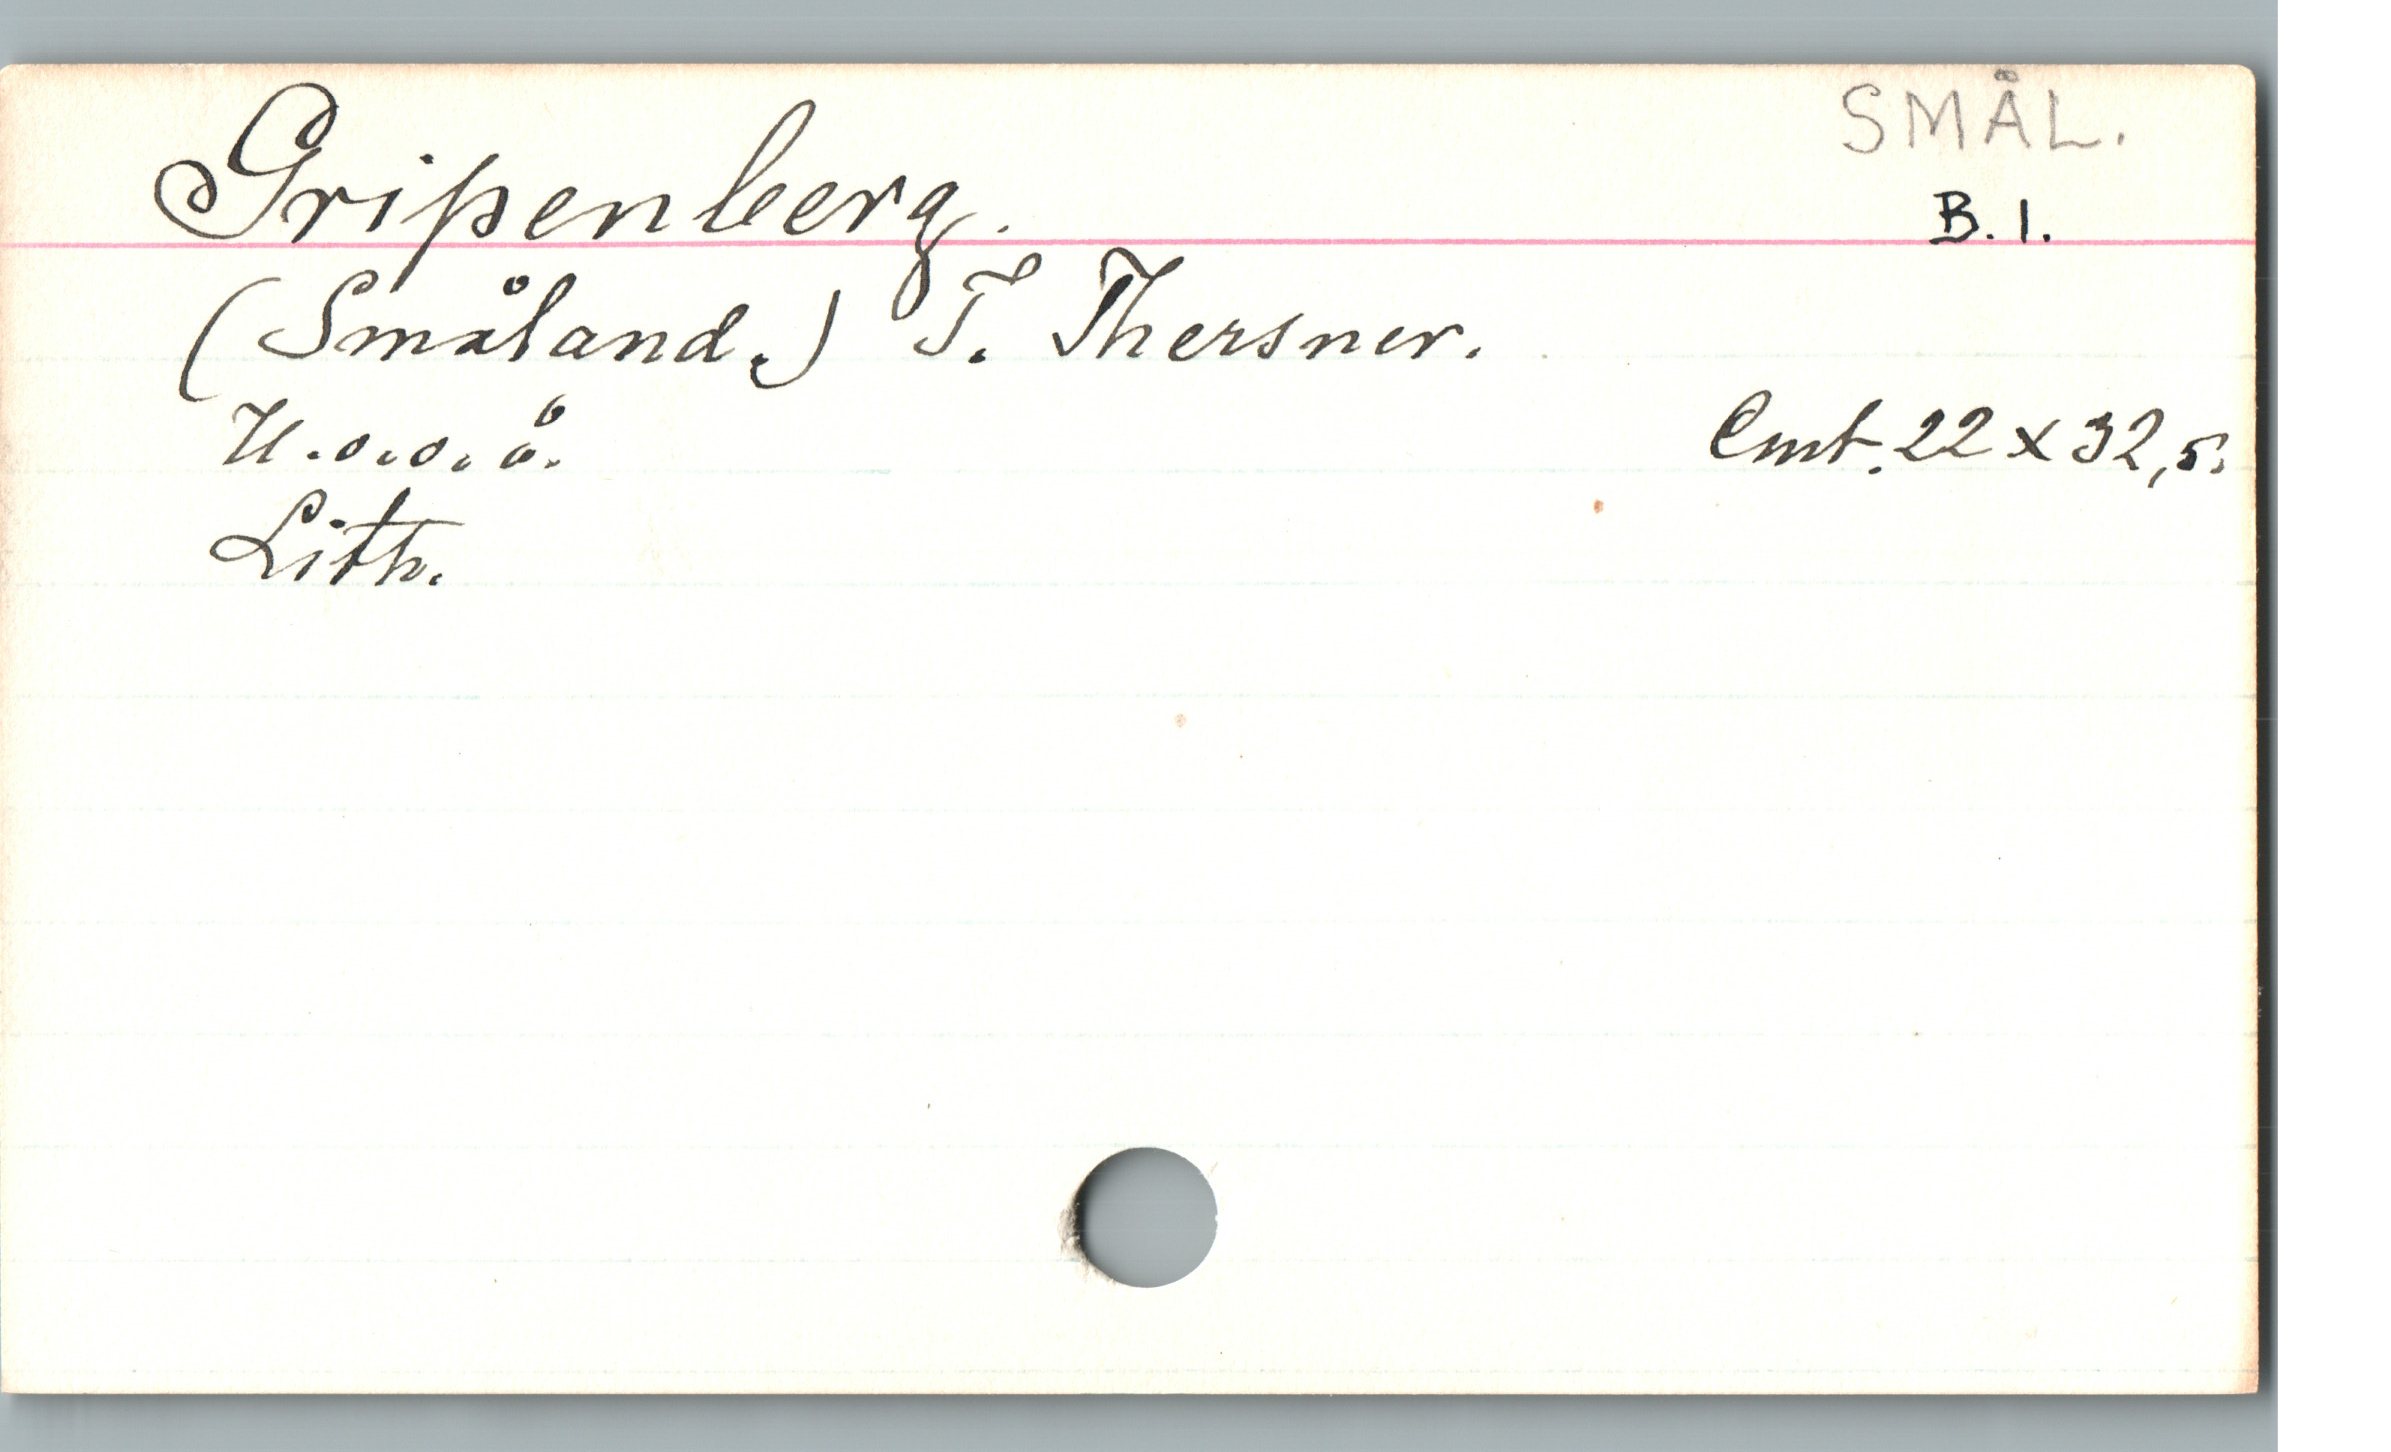 SMÅL.
Gripenberg.
B. 1.
(Småland.) T. Thersner.
U.o.o.å.
Cmt. 22 x 32,5.
Lith.